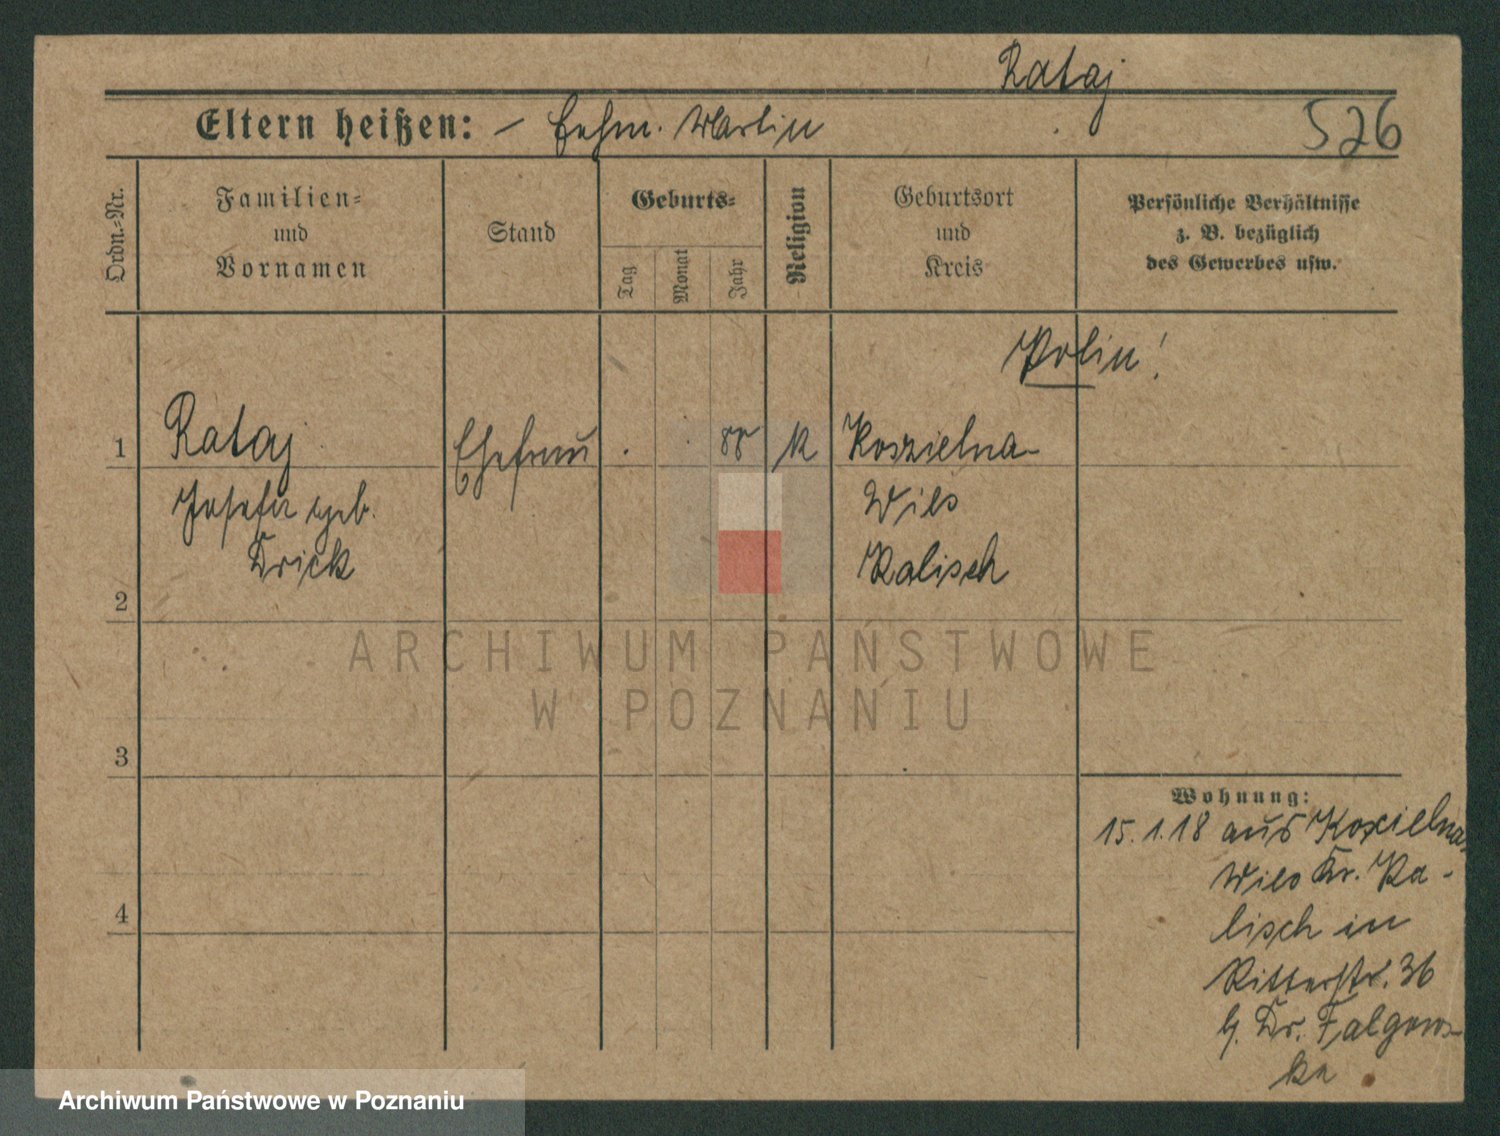 Rataj
Eltern heißen: – Ehm. Martin
526
Ordn.=Nr.
Familien=
und
Vornamen
Stand
Geburts=
Tag
Monat
Jahr
Religion
Geburtsort
und
Kreis
Persönliche Verhältnisse
z. B. bezüglich
des Gewerbes usw.
Polin!
1 Rataj Ehefrau 88 k Koszielna-
Josefa geb. Wies
Krick Kalisch
2
3
4
Wohnung:
15.1.18 aus Koszielna-
Wies Kr. Ka-
lisch in
Ritterstr. 36
b. Dr. Falgows-
ka
ARCHIWUM PAŃSTWOWE
W POZNANIU
Archiwum Państwowe w Poznaniu